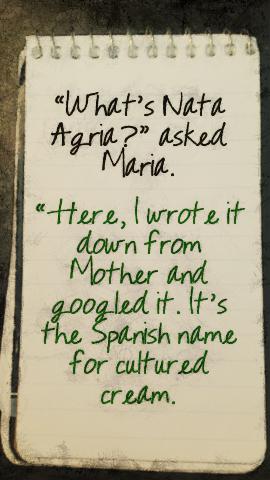 “What's Nata
Agria?” asked
Maria.
“Here, I wrote it
down from
Mother and
googled it. It's
the Spanish name
for cultured
cream.